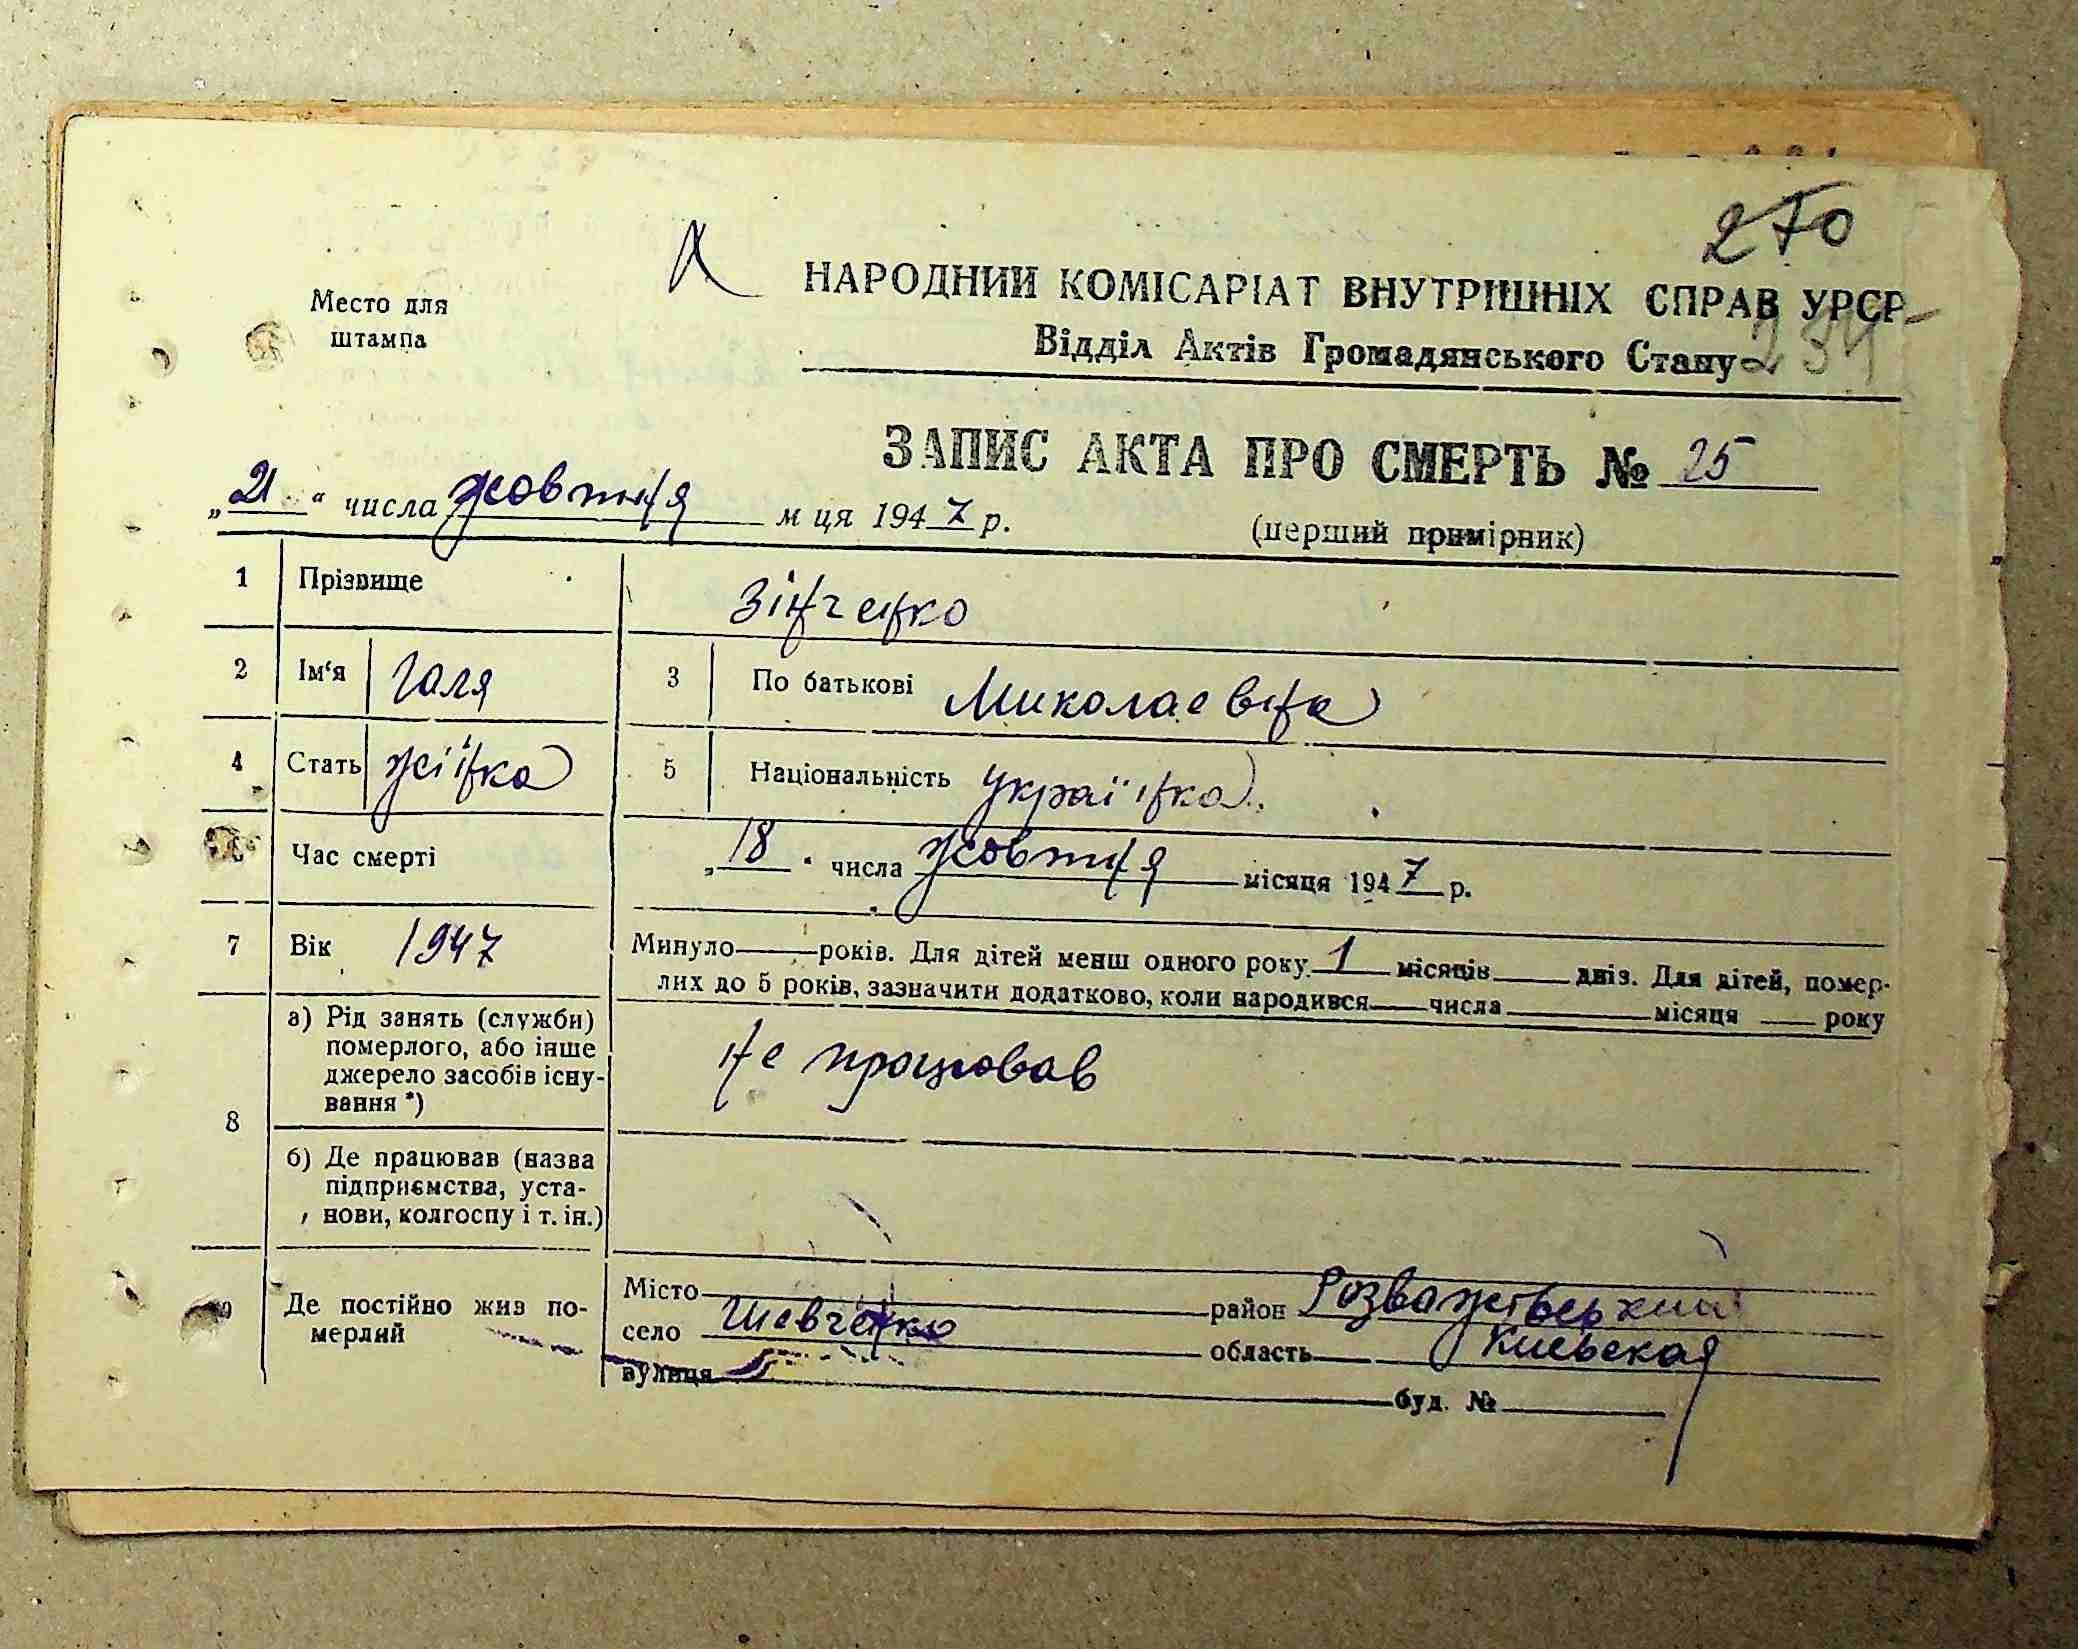 270
Место для
штампа
НАРОДНИЙ КОМІСАРІАТ ВНУТРІШНІХ СПРАВ УРСР
Відділ Актів Громадянського Стану
234
ЗАПИС АКТА ПРО СМЕРТЬ № 25
„21“ числа жовтня м ця 1947 р.
(перший примірник)
1 Прізвище Зінченко
2 Ім'я Галя 3 По батькові Миколаевна
4 Стать жінка 5 Національність українка
Час смерті „18" числа жовтня місяця 1947 р.
7 Вік 1947 Минуло — років. Для дітей менш одного року 1 місяців — днів. Для дітей, помер-
лих до 5 років, зазначити додатково, коли народився — числа — місяця — року
8 а) Рід занять (служби)
померлого, або інше
джерело засобів існу-
вання *)
не працював
б) Де працював (назва
підприємства, уста-
нови, колгоспу і т. ін.)
9 Де постійно жив по-
мерлий
Місто район Розважівський
село Шевченко область Киевская
вулиця буд. №